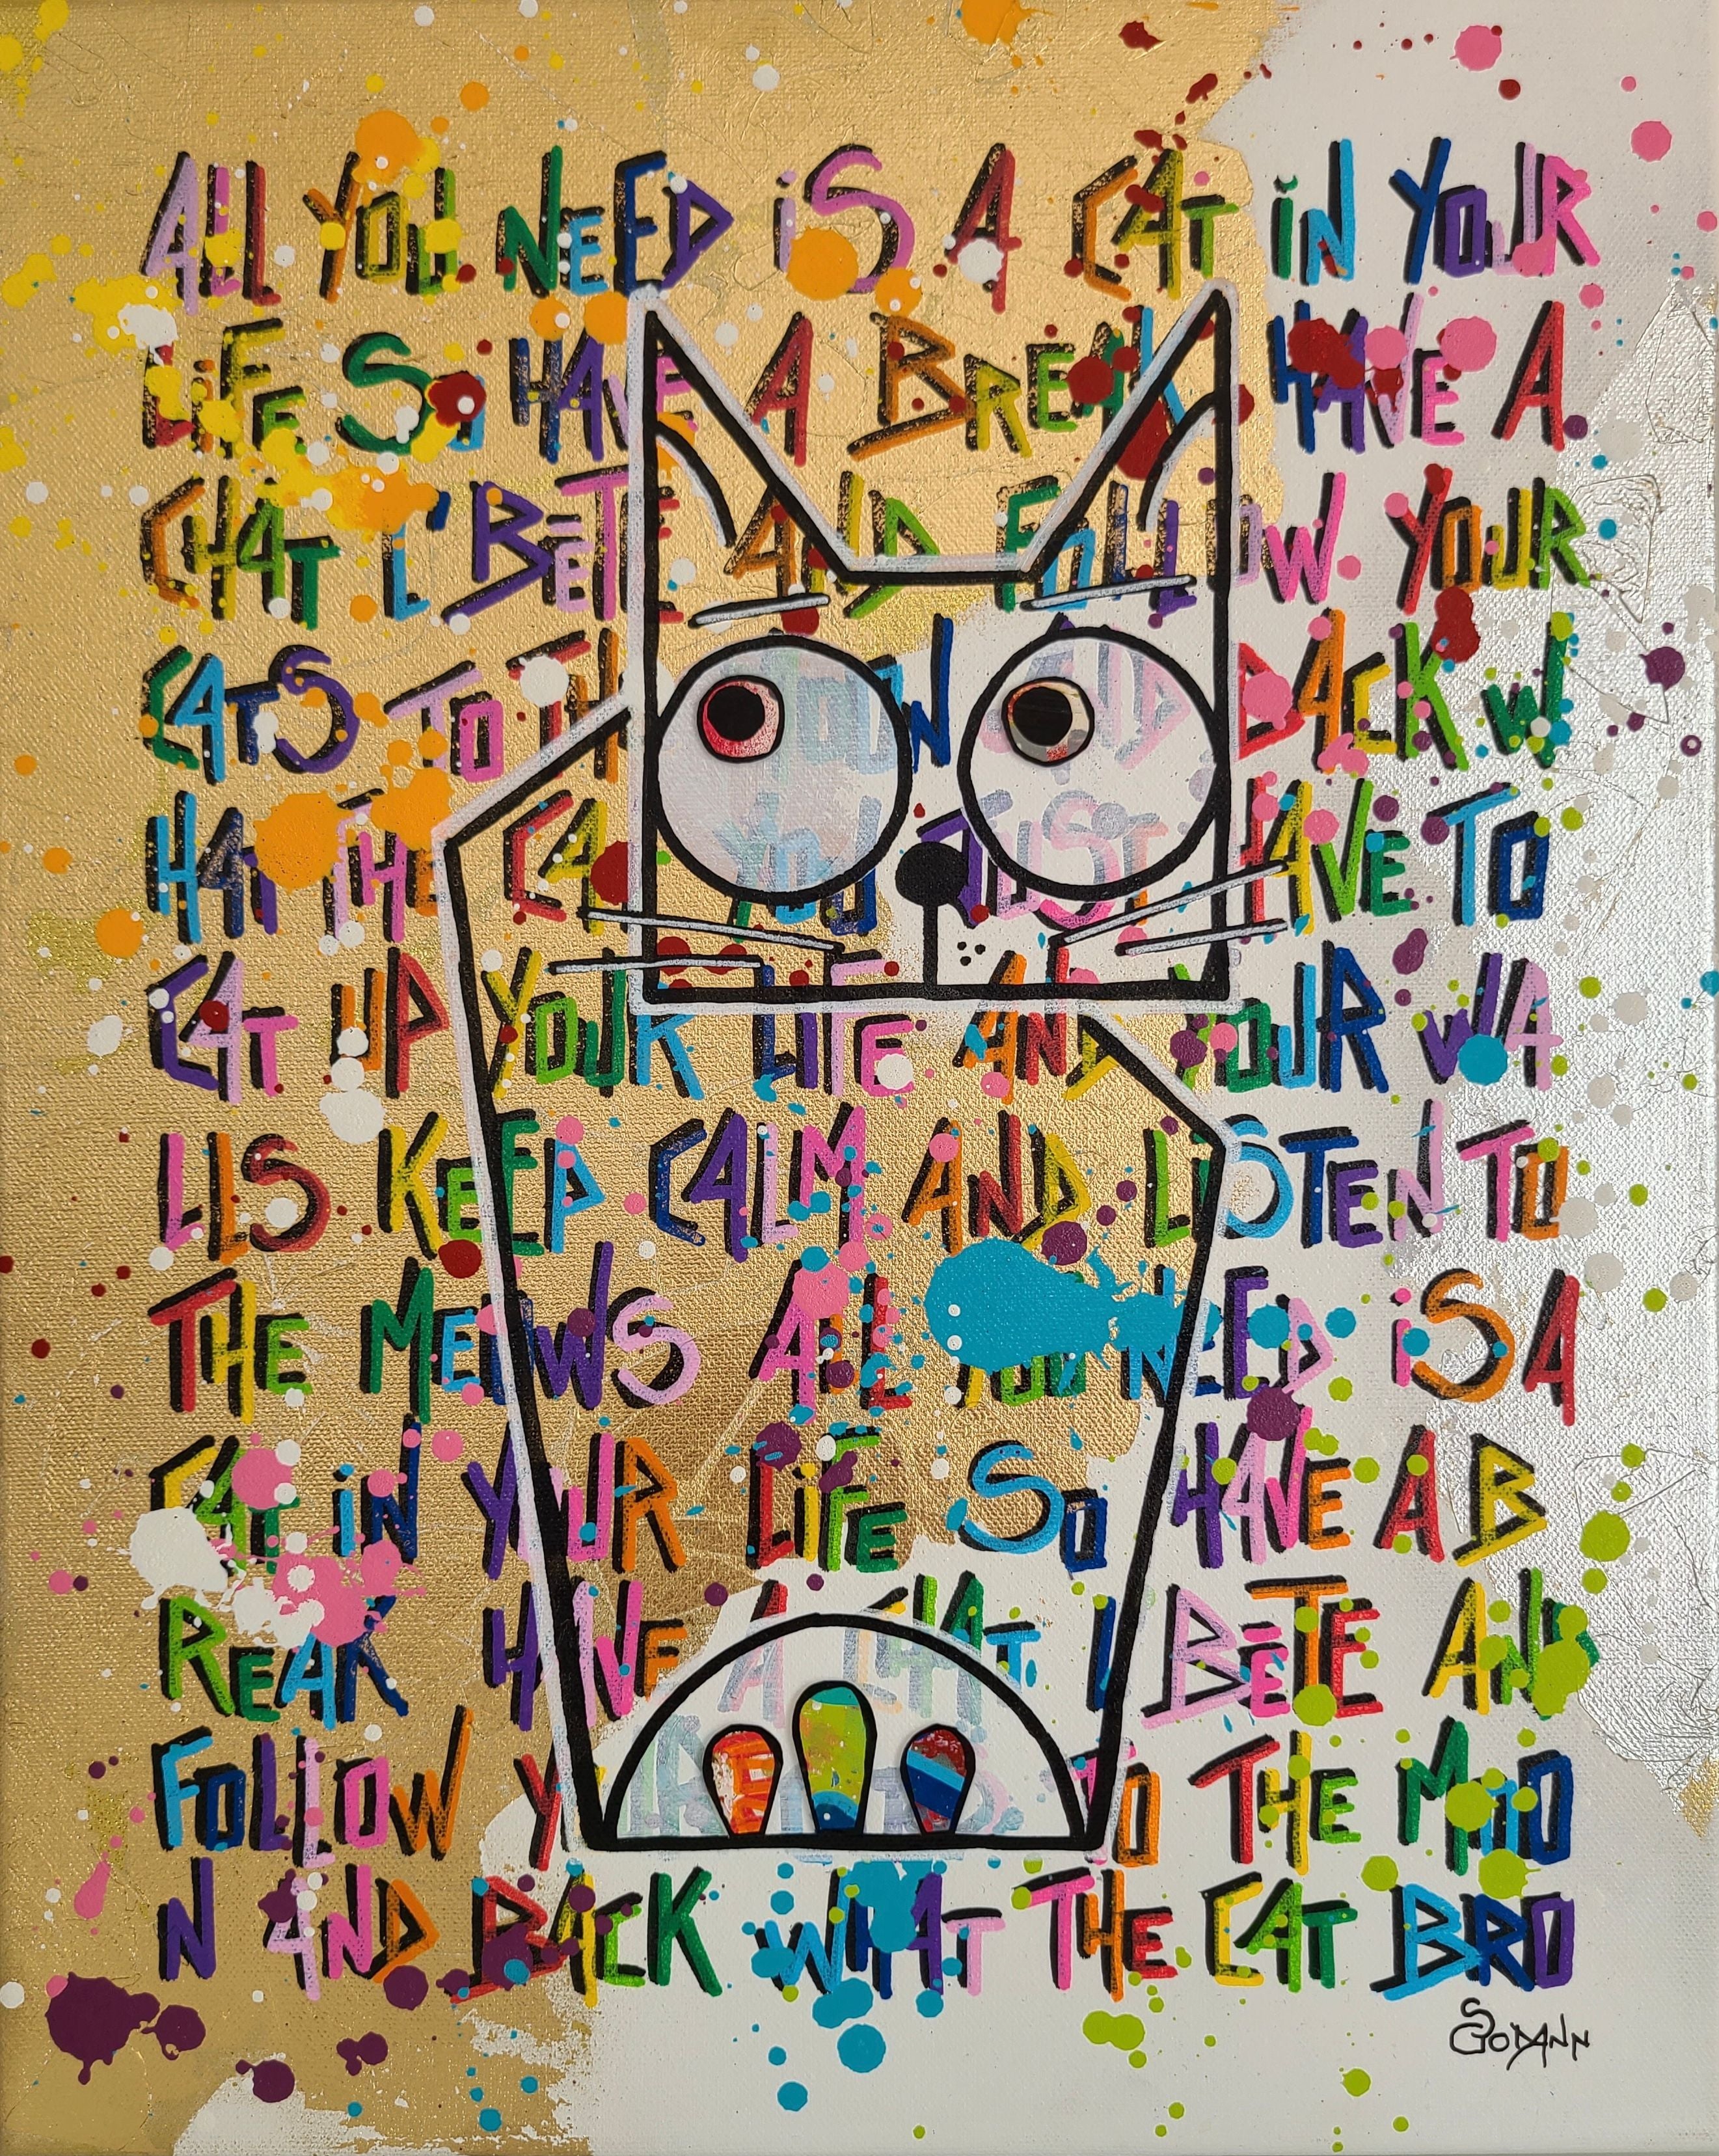 ALL YOU NEED iS A CAT iN YOUR
LiFE SO HAVE A BREAK HAVE A
CHAT L'BĒTE AND FOLLOW YOUR
CATS TO THE MOON AND BACK W
HAT THE CAT YOU JUST HAVE TO
CAT UP YOUR LIFE AND YOUR WA
LLS KEEP CALM AND LiSTEN TO
THE MEOWS ALL YOU NEED iS A
CAT iN YOUR LiFE SO HAVE A B
REAK HAVE A CHAT L'BĒTE AND
FOLLOW YOUR CATS TO THE MOO
N AND BACK WHAT THE CAT BRO
SGODANN